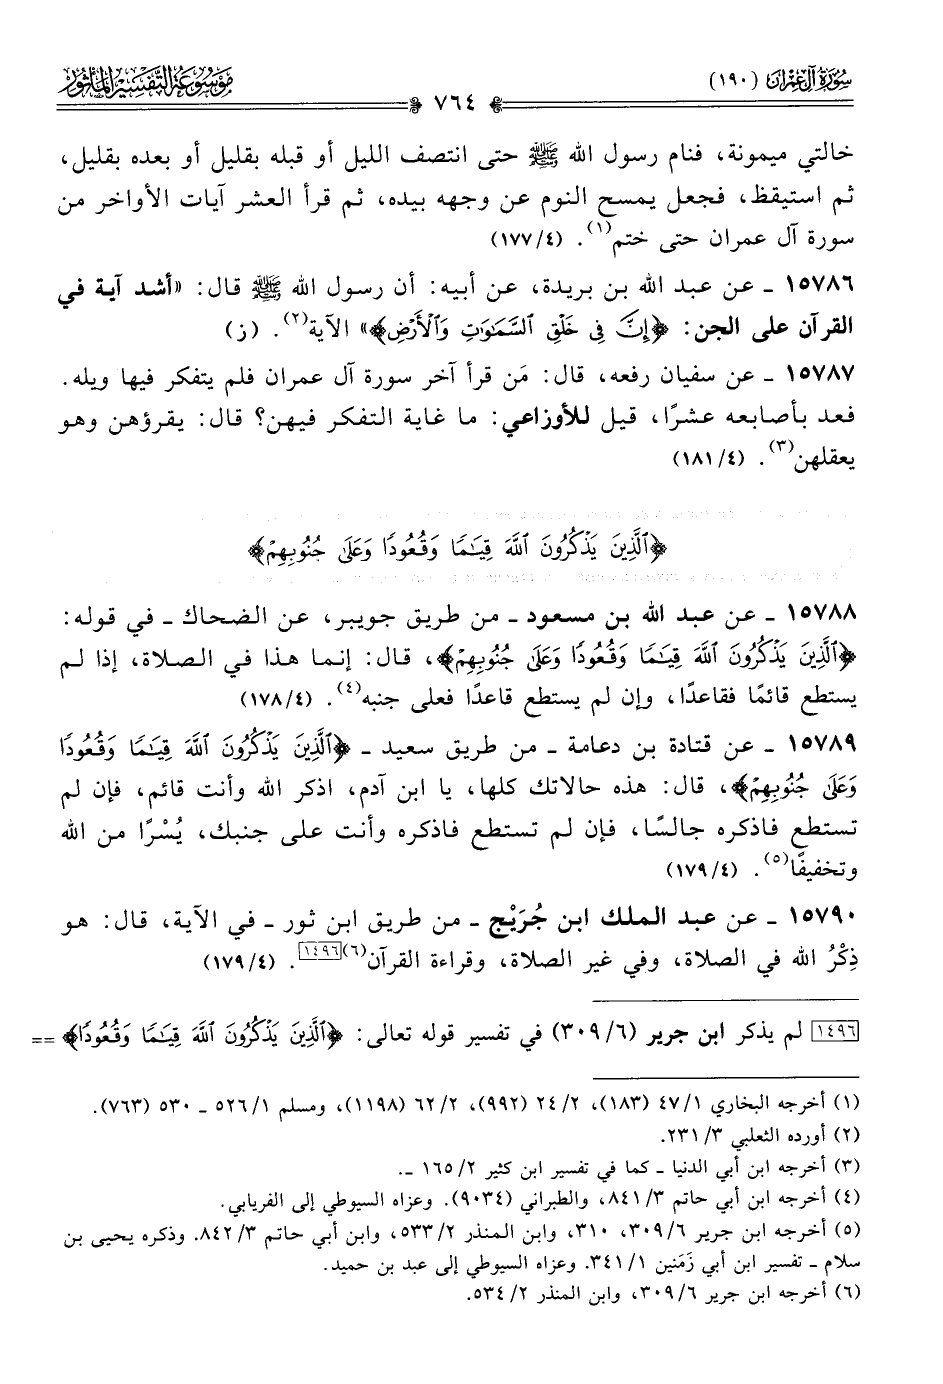 سورة آل عمران (١٩٠)
٧٦٤
موسوعة التفسير المأثور
خالتي ميمونة، فنام رسول الله ﷺ حتى انتصف الليل أو قبله بقليل أو بعده بقليل،
ثم استيقظ، فجعل يمسح النوم عن وجهه بيده، ثم قرأ العشر آيات الأواخر من
سورة آل عمران حتى ختم(١). (٤/١٧٧)
١٥٧٨٦ ـ عن عبد الله بن بريدة، عن أبيه: أن رسول الله ﷺ قال: «أشد آية في
القرآن على الجن: ﴿إِنَّ فِي خَلْقِ السَّمَٰوَٰتِ وَالْأَرْضِ﴾» الآية(٢). (ز)
١٥٧٨٧ ـ عن سفيان رفعه، قال: مَن قرأ آخر سورة آل عمران فلم يتفكر فيها ويله.
فعد بأصابعه عشرًا، قيل للأوزاعي: ما غاية التفكر فيهن؟ قال: يقرؤهن وهو
يعقلهن(٣). (٤/١٨١)
﴿الَّذِينَ يَذْكُرُونَ اللَّهَ قِيَٰمًا وَقُعُودًا وَعَلَىٰ جُنُوبِهِمْ﴾
١٥٧٨٨ ـ عن عبد الله بن مسعود ـ من طريق جويبر، عن الضحاك ـ في قوله:
﴿الَّذِينَ يَذْكُرُونَ اللَّهَ قِيَٰمًا وَقُعُودًا وَعَلَىٰ جُنُوبِهِمْ﴾، قال: إنما هذا في الصلاة، إذا لم
يستطع قائمًا فقاعدًا، وإن لم يستطع قاعدًا فعلى جنبه(٤). (٤/١٧٨)
١٥٧٨٩ ـ عن قتادة بن دعامة ـ من طريق سعيد ـ ﴿الَّذِينَ يَذْكُرُونَ اللَّهَ قِيَٰمًا وَقُعُودًا
وَعَلَىٰ جُنُوبِهِمْ﴾، قال: هذه حالاتك كلها، يا ابن آدم، اذكر الله وأنت قائم، فإن لم
تستطع فاذكره جالسًا، فإن لم تستطع فاذكره وأنت على جنبك، يُسْرًا من الله
وتخفيفًا(٥). (٤/١٧٩)
١٥٧٩٠ ـ عن عبد الملك ابن جُرَيْج ـ من طريق ابن ثور ـ في الآية، قال: هو
ذِكْرُ الله في الصلاة، وفي غير الصلاة، وقراءة القرآن(٦)[١٤٩٦]. (٤/١٧٩)
[١٤٩٦] لم يذكر ابن جرير (٦/٣٠٩) في تفسير قوله تعالى: ﴿الَّذِينَ يَذْكُرُونَ اللَّهَ قِيَٰمًا وَقُعُودًا﴾ ==
(١) أخرجه البخاري ١/٤٧ (١٨٣)، ٢/٢٤ (٩٩٢)، ٢/٦٢ (١١٩٨)، ومسلم ١/٥٢٦ ـ ٥٣٠ (٧٦٣).
(٢) أورده الثعلبي ٣/٢٣١.
(٣) أخرجه ابن أبي الدنيا ـ كما في تفسير ابن كثير ٢/١٦٥ ـ.
(٤) أخرجه ابن أبي حاتم ٣/٨٤١، والطبراني (٩٠٣٤). وعزاه السيوطي إلى الفريابي.
(٥) أخرجه ابن جرير ٦/٣٠٩، ٣١٠، وابن المنذر ٢/٥٣٣، وابن أبي حاتم ٣/٨٤٢. وذكره يحيى بن
سلام ـ تفسير ابن أبي زَمَنين ١/٣٤١. وعزاه السيوطي إلى عبد بن حميد.
(٦) أخرجه ابن جرير ٦/٣٠٩، وابن المنذر ٢/٥٣٤.